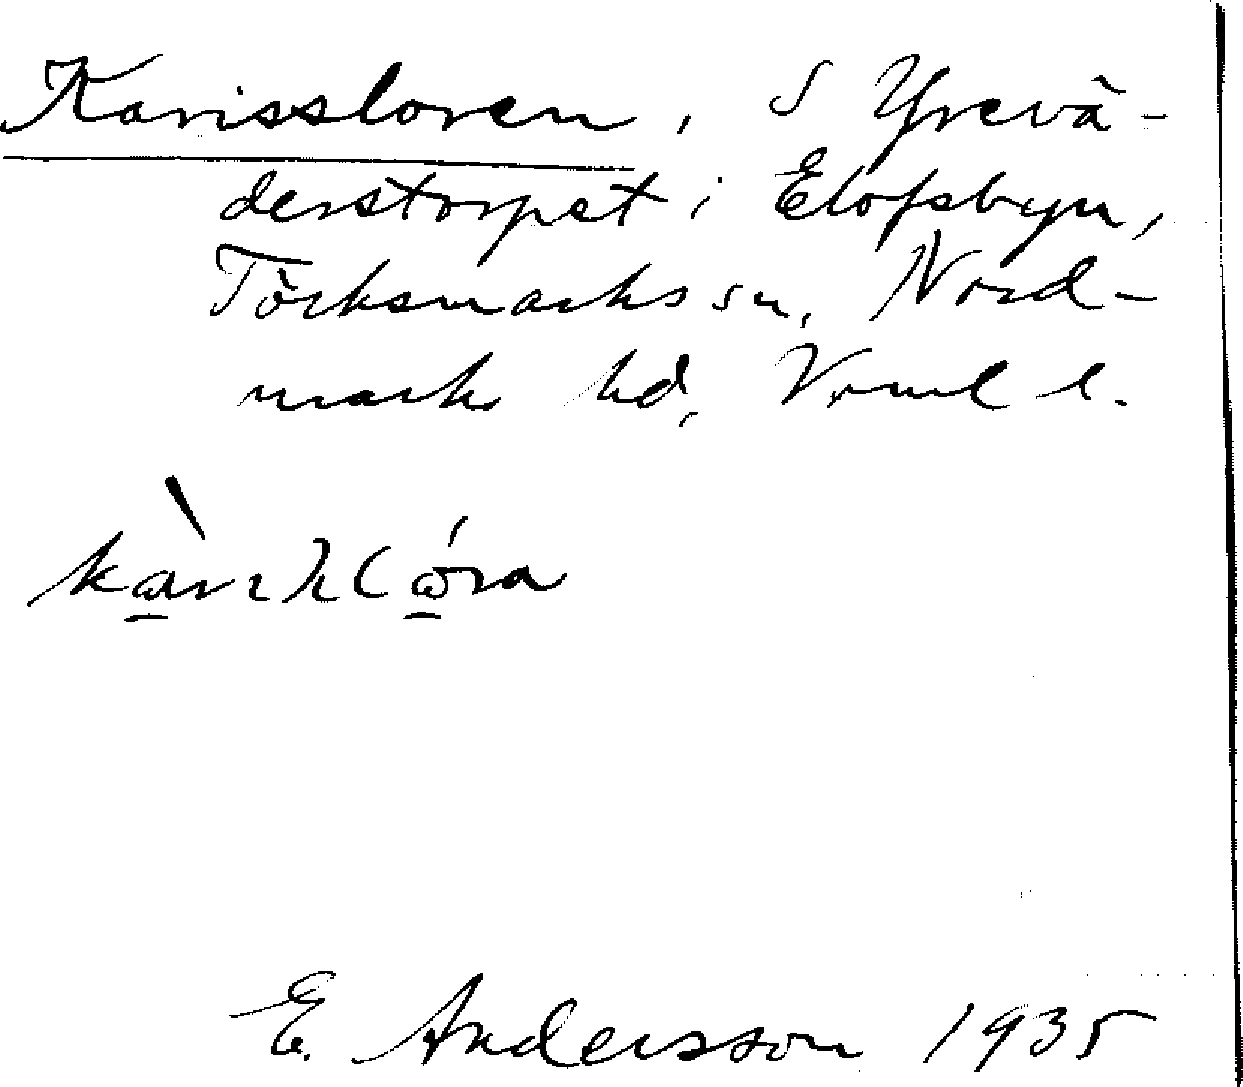 Karissloren, S Yrevä-
derstorpet i Elofsbyn,
Töcksmarks sn, Nord-
mark hd, Vrml l.
E. Andersson 1935